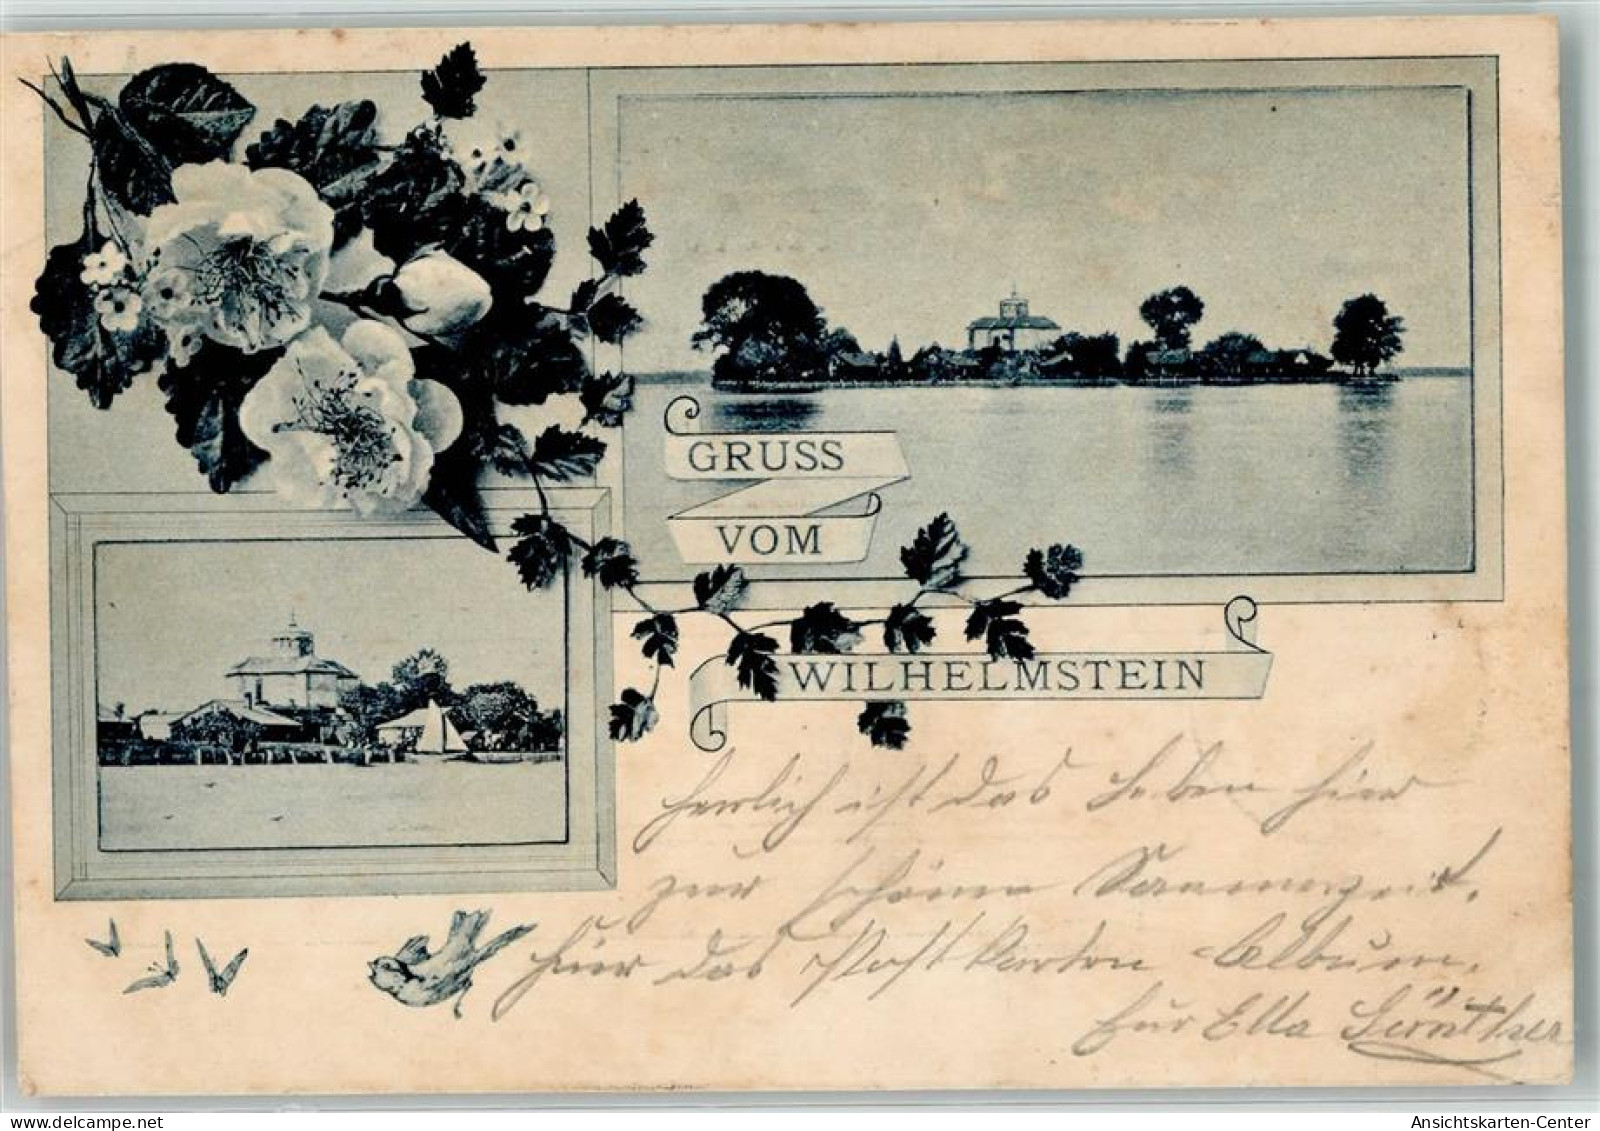 GRUSS
VOM
WILHELMSTEIN
Herrlich ist das Leben hier
zur schönen Sommerzeit.
Für das Postkarten Album.
für Ella Günther
oldthing.de
Ansichtskarten-Center